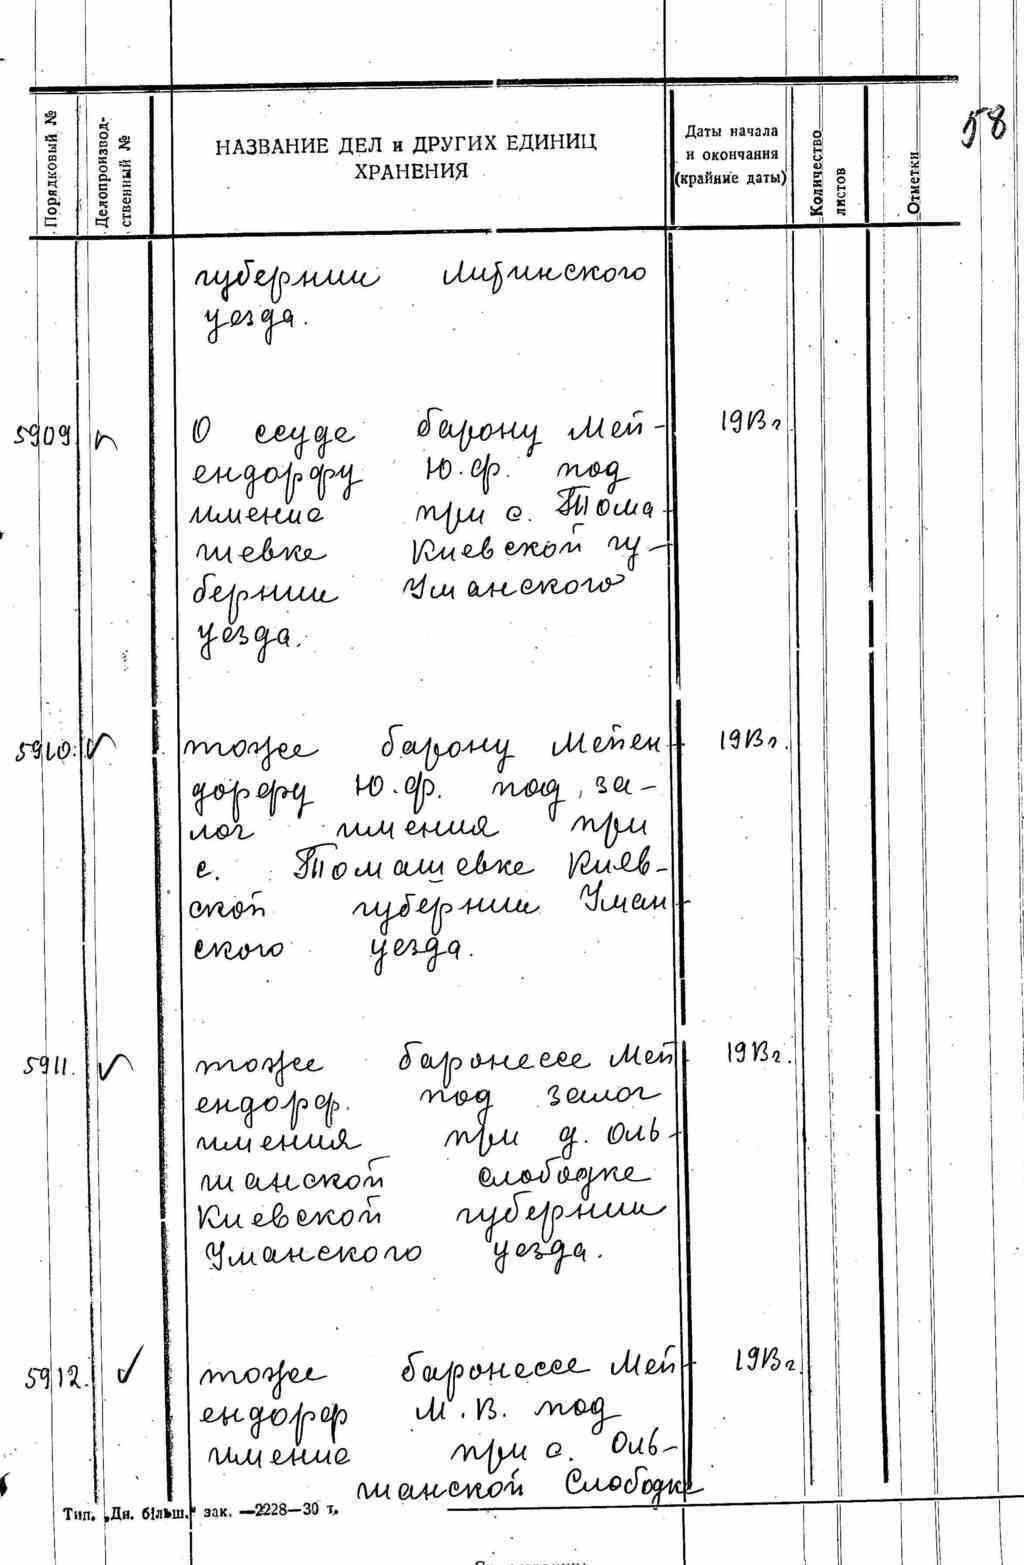 58
Порядковый №
Делопроизвод-
ственный №
НАЗВАНИЕ ДЕЛ и ДРУГИХ ЕДИНИЦ
ХРАНЕНИЯ
Даты начала
и окончания
(крайние даты)
Количество
листов
Отметки
губернии Литинского
уезда.
5909 О ссуде барону Мей- 1913 г
ендорфу Ю.Ф. под
имение при с. Тома-
шевке Киевской гу-
бернии Уманского
уезда.
5910. тоже барону Мейен- 1913 г.
дорфу Ю.Ф. под за-
лог имения при
с. Томашевке Киев-
ской губернии Уман-
ского уезда.
5911. тоже баронессе Мей- 1913 г.
ендорф. под залог
имения при д. Оль-
шанской слободке
Киевской губернии
Уманского уезда.
5912. тоже баронессе Мей- 1913 г.
ендорф М.В. под
имение при с. Оль-
шанской Слободке
Тип. „Дн. більш." зак. —2228—30 т.